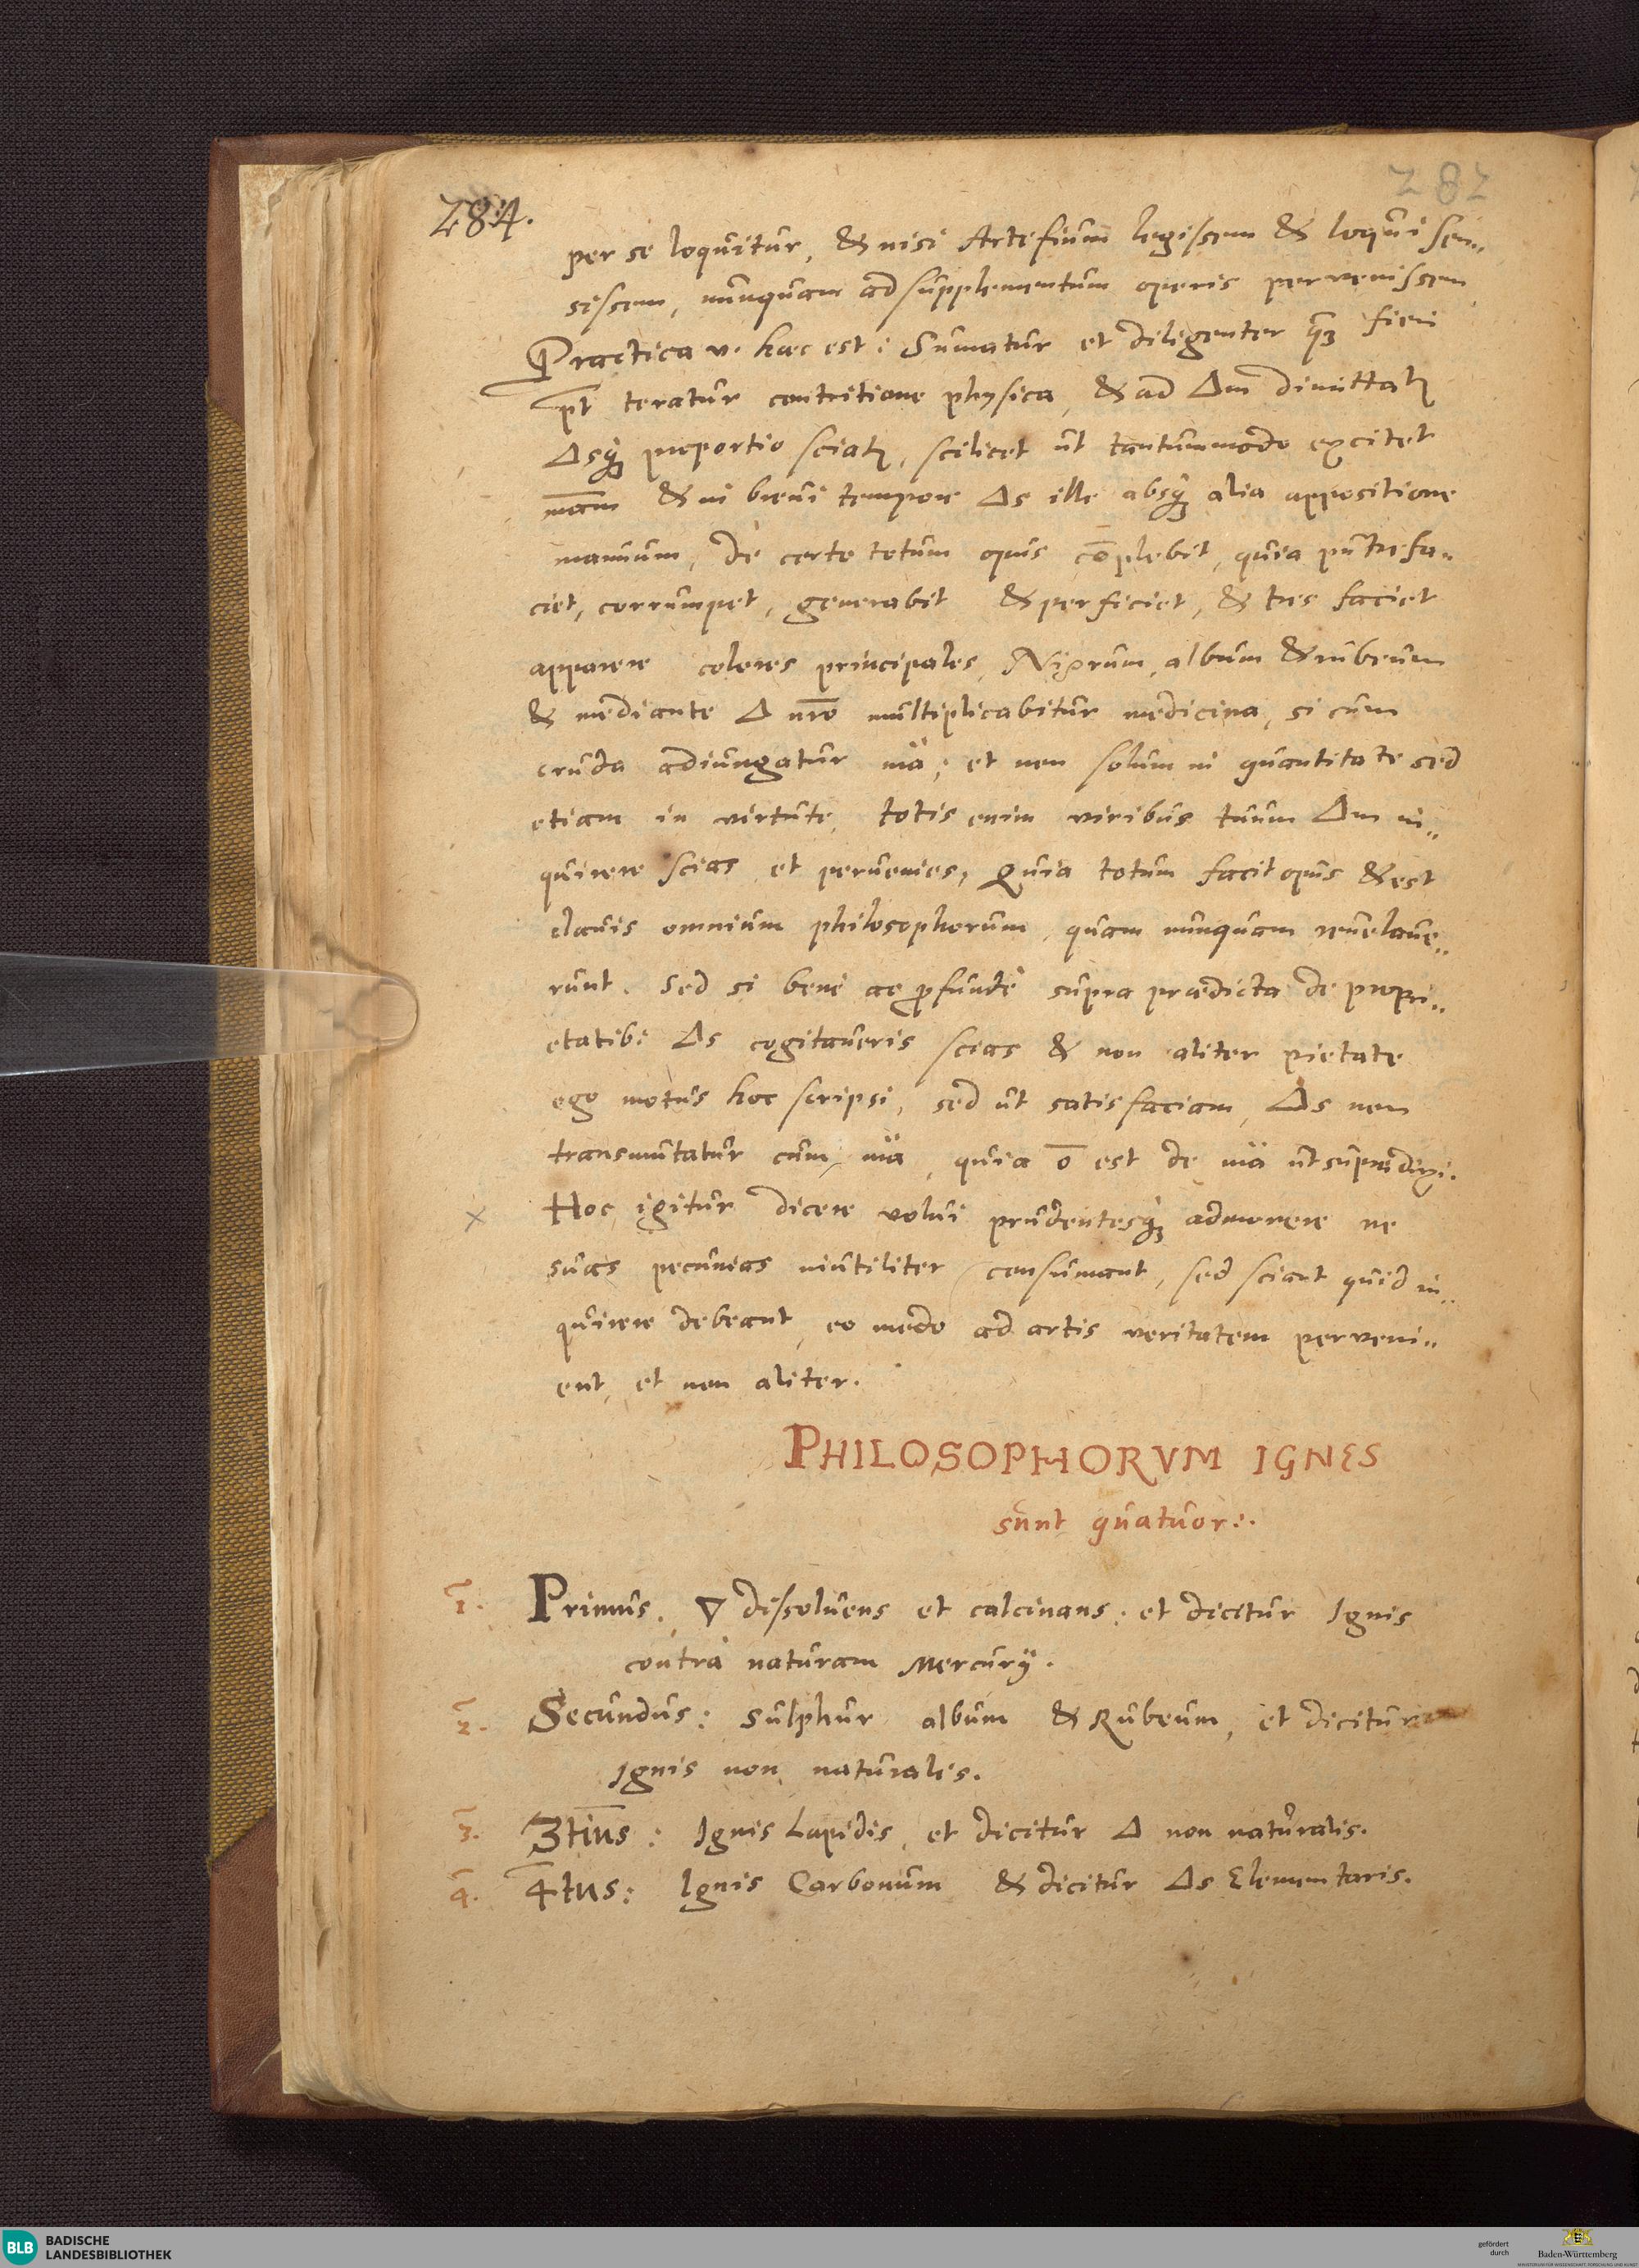 284.
282
per se loquitur, & nisi Artefium legissem & loqui sen„
sissem, nunquam ad supplementum operis pervenissem
Practica v. haec est: Sumatur et diligenter qꝫ fieri
pt teratur contritione physica, & ad △m dimittatꝛ
△sqꝫ proportio sciatꝛ, scilicet ut tantummodo excitet
mam & in brevi tempore △s ille absqꝫ alia appositione
manuum, de certo totum opus cōplebit, quia putrefa„
ciet, corrumpet, generabit & perficiet, & tres faciet
apparere colores principales, Nigrum, album & rubeum
& mediante △ nro multiplicabitur medicina, si cum
cruda adiungatur mä; et non solum in quantitate sed
etiam in virtute, totis enim viribus tuum △m in„
quirere scias et pervenies, Quia totum facit opus & est
clavis omnium philosophorum, quam nunquam revelave„
runt. Sed si bene ac ꝓfundè supra praedicta de propri„
etatib: △s cogitaveris scias & non aliter pietate
ego motus hoc scripsi, sed ut satisfaciam, △s non
transmutatur cum mä, quia ō est de mä ut supra dixi.
× Hoc igitur dicere volui prudentesqꝫ admonere ne
suas pecunias inutiliter consumant, sed sciant quid in„
quirere debeant, eo modo ad artis veritatem perveni„
ent, et non aliter.
PHILOSOPHORVM IGNES
sunt quatuor:.
1. Primus. ▽ dissolvens et calcinans: et dicitur Ignis
contra naturam Mercurÿ.
2. Secundus: Sulphur album & Rubeum, et dicitur
Ignis non naturalis.
3. 3tius: Ignis Lapidis, et dicitur △ non naturalis.
4. 4tus: Ignis Carbonum & dicitur △s Elementaris.
BLB BADISCHE
LANDESBIBLIOTHEK
gefördert
durch
Baden-Württemberg